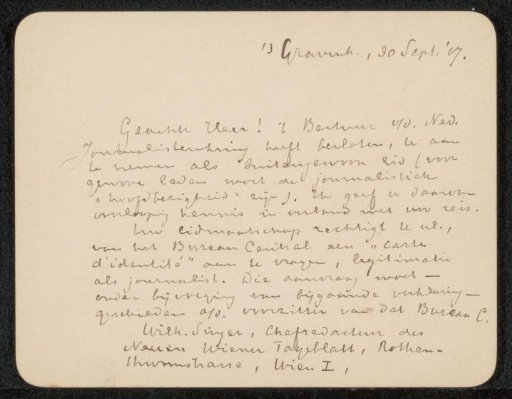 's Gravenh., 30 Sept. '07.
Geachte Heer! 't Bestuur v/d. Ned.
Journalistenkring heeft besloten, u aan
te nemen als buitengewoon lid (voor
gewone leden moet de journalistiek
"hoofdbezigheid" zijn). Ik geef u daarvan
voorloopig kennis in verband met uw reis.
Uw lidmaatschap rechtigt u nl.,
van het Bureau Central een "carte
d'identité" aan te vragen, legitimatie
als journalist. Die aanvraag moet —
onder bijvoeging van bijgaande verklaring —
geschieden a/d. voorzitter van dat Bureau C.
Wilh. Singer, Chefredacteur des
Neuen Wiener Tageblatt, Rothen-
thurmstrasse, Wien I,